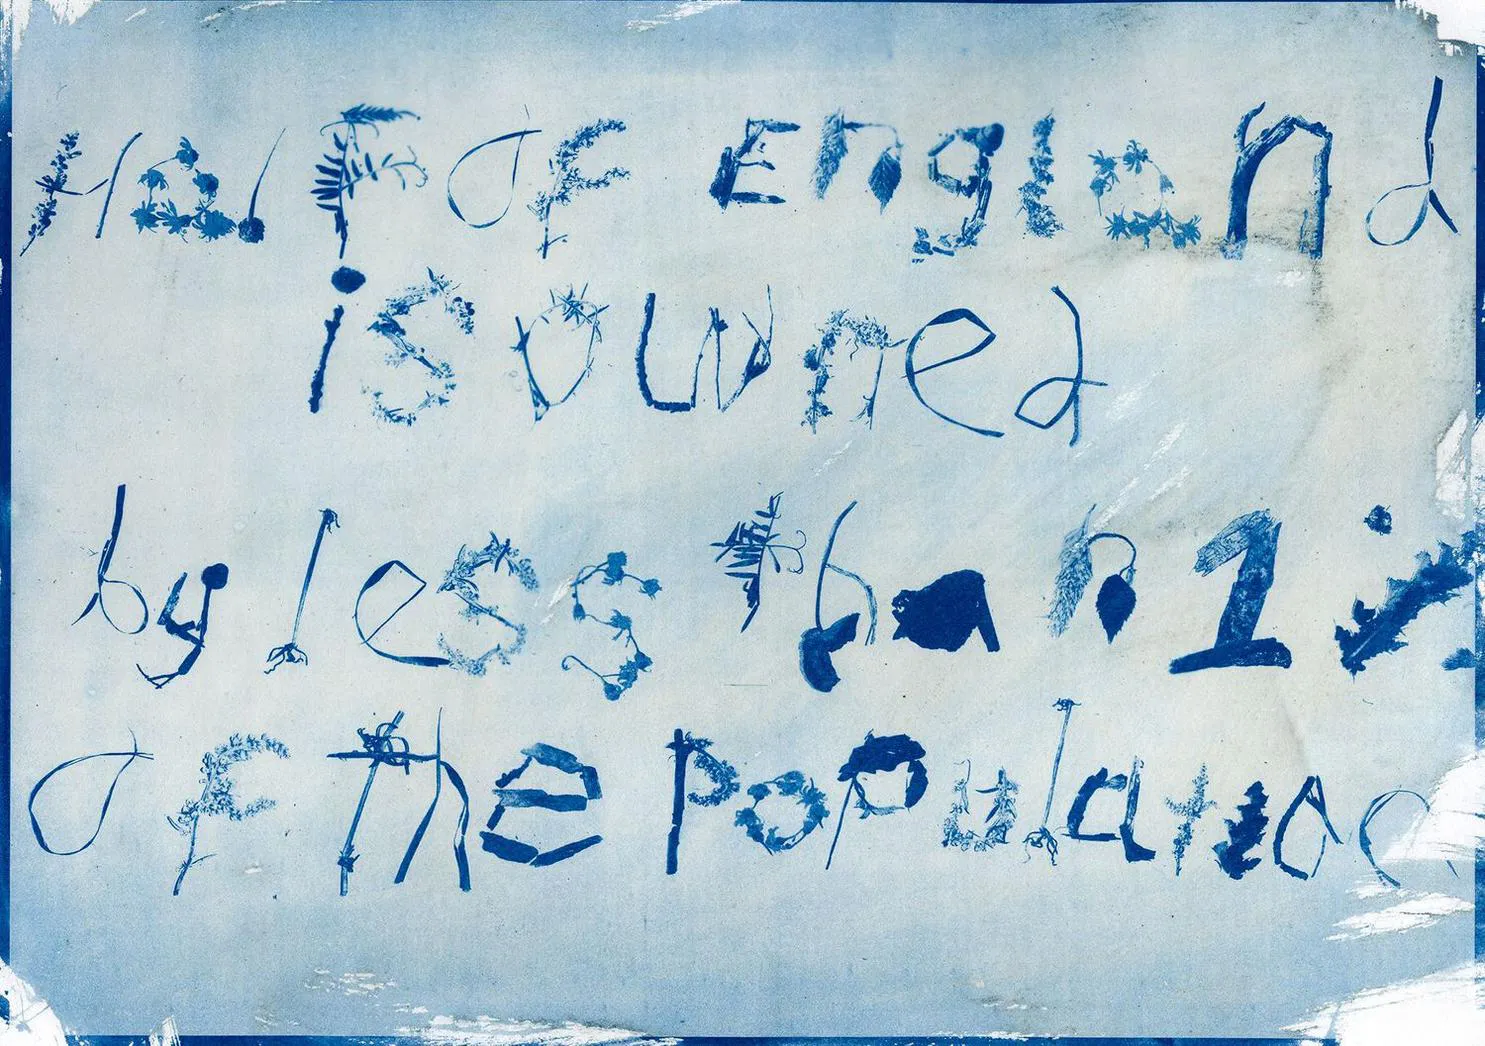 Half of England
is owned
by less than 1%
of the population